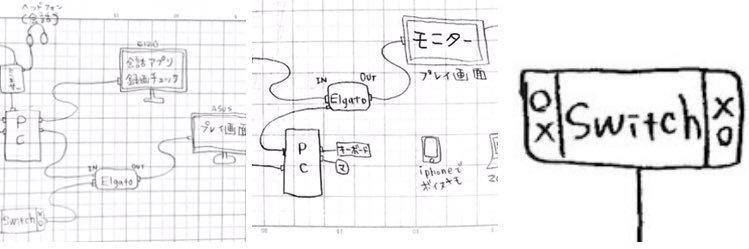 ヘッドフォン
(会話)
EIZO
会話アプリ
録画チェック
PC
ASUS
プレイ画面
IN
OUT
Elgato
Switch
X
O
モニター
プレイ画面
IN
OUT
Elgato
PC
キーボード
マ
iphoneで
ボイスメモ
O
X
Switch
X
O